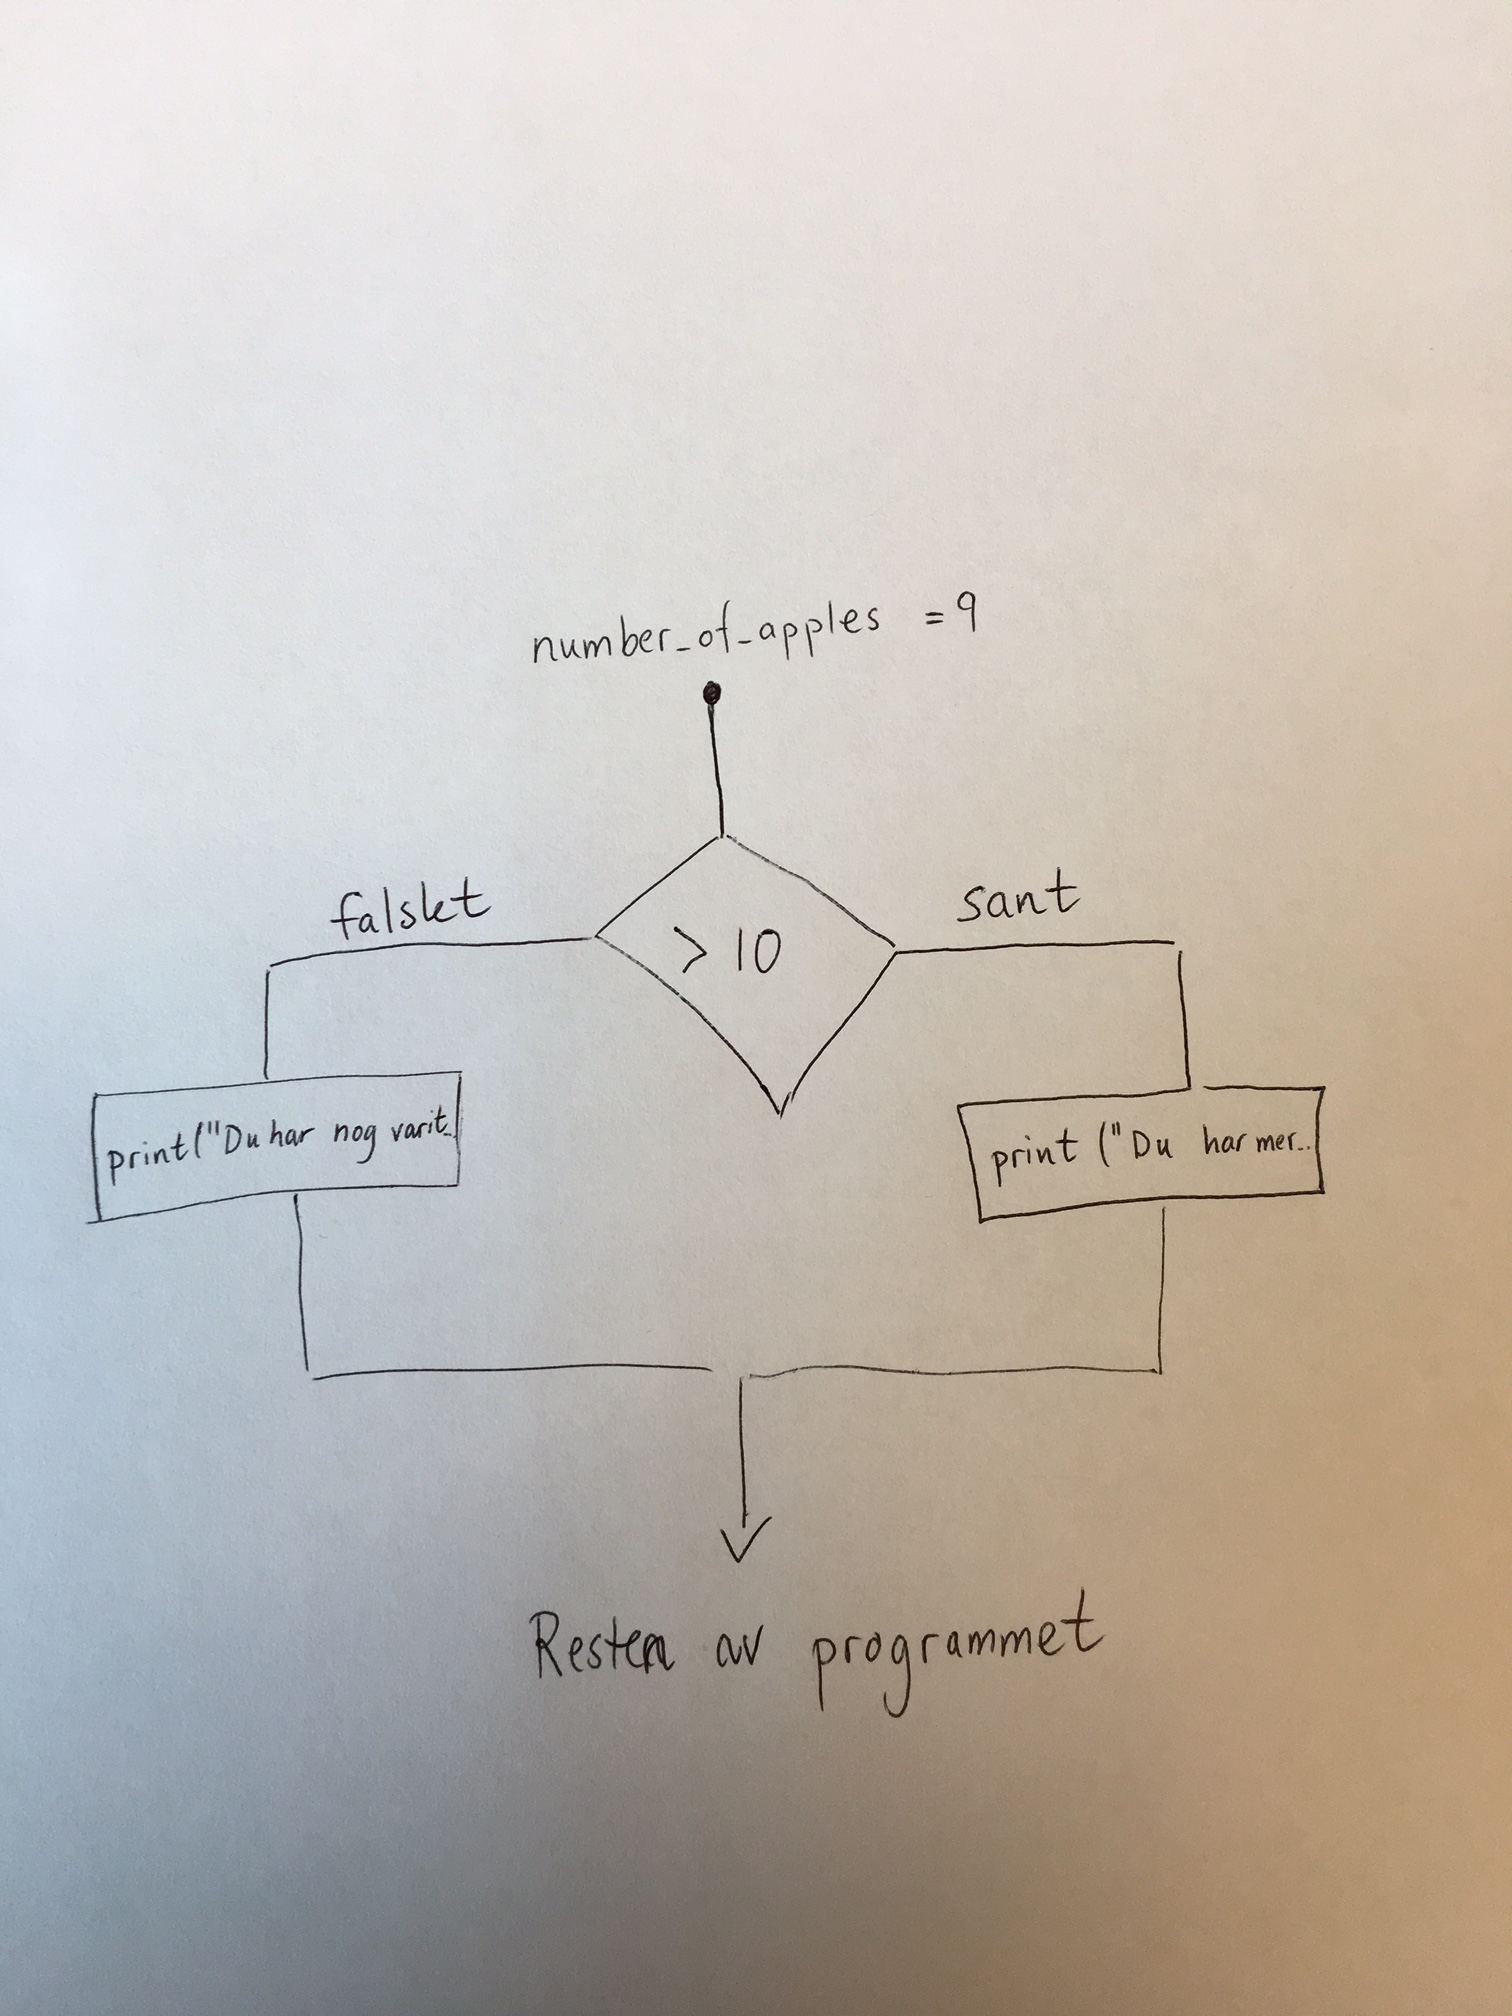 number_of_apples = 9
falskt
sant
> 10
print("Du har nog varit..
print ("Du har mer...
Resten av programmet